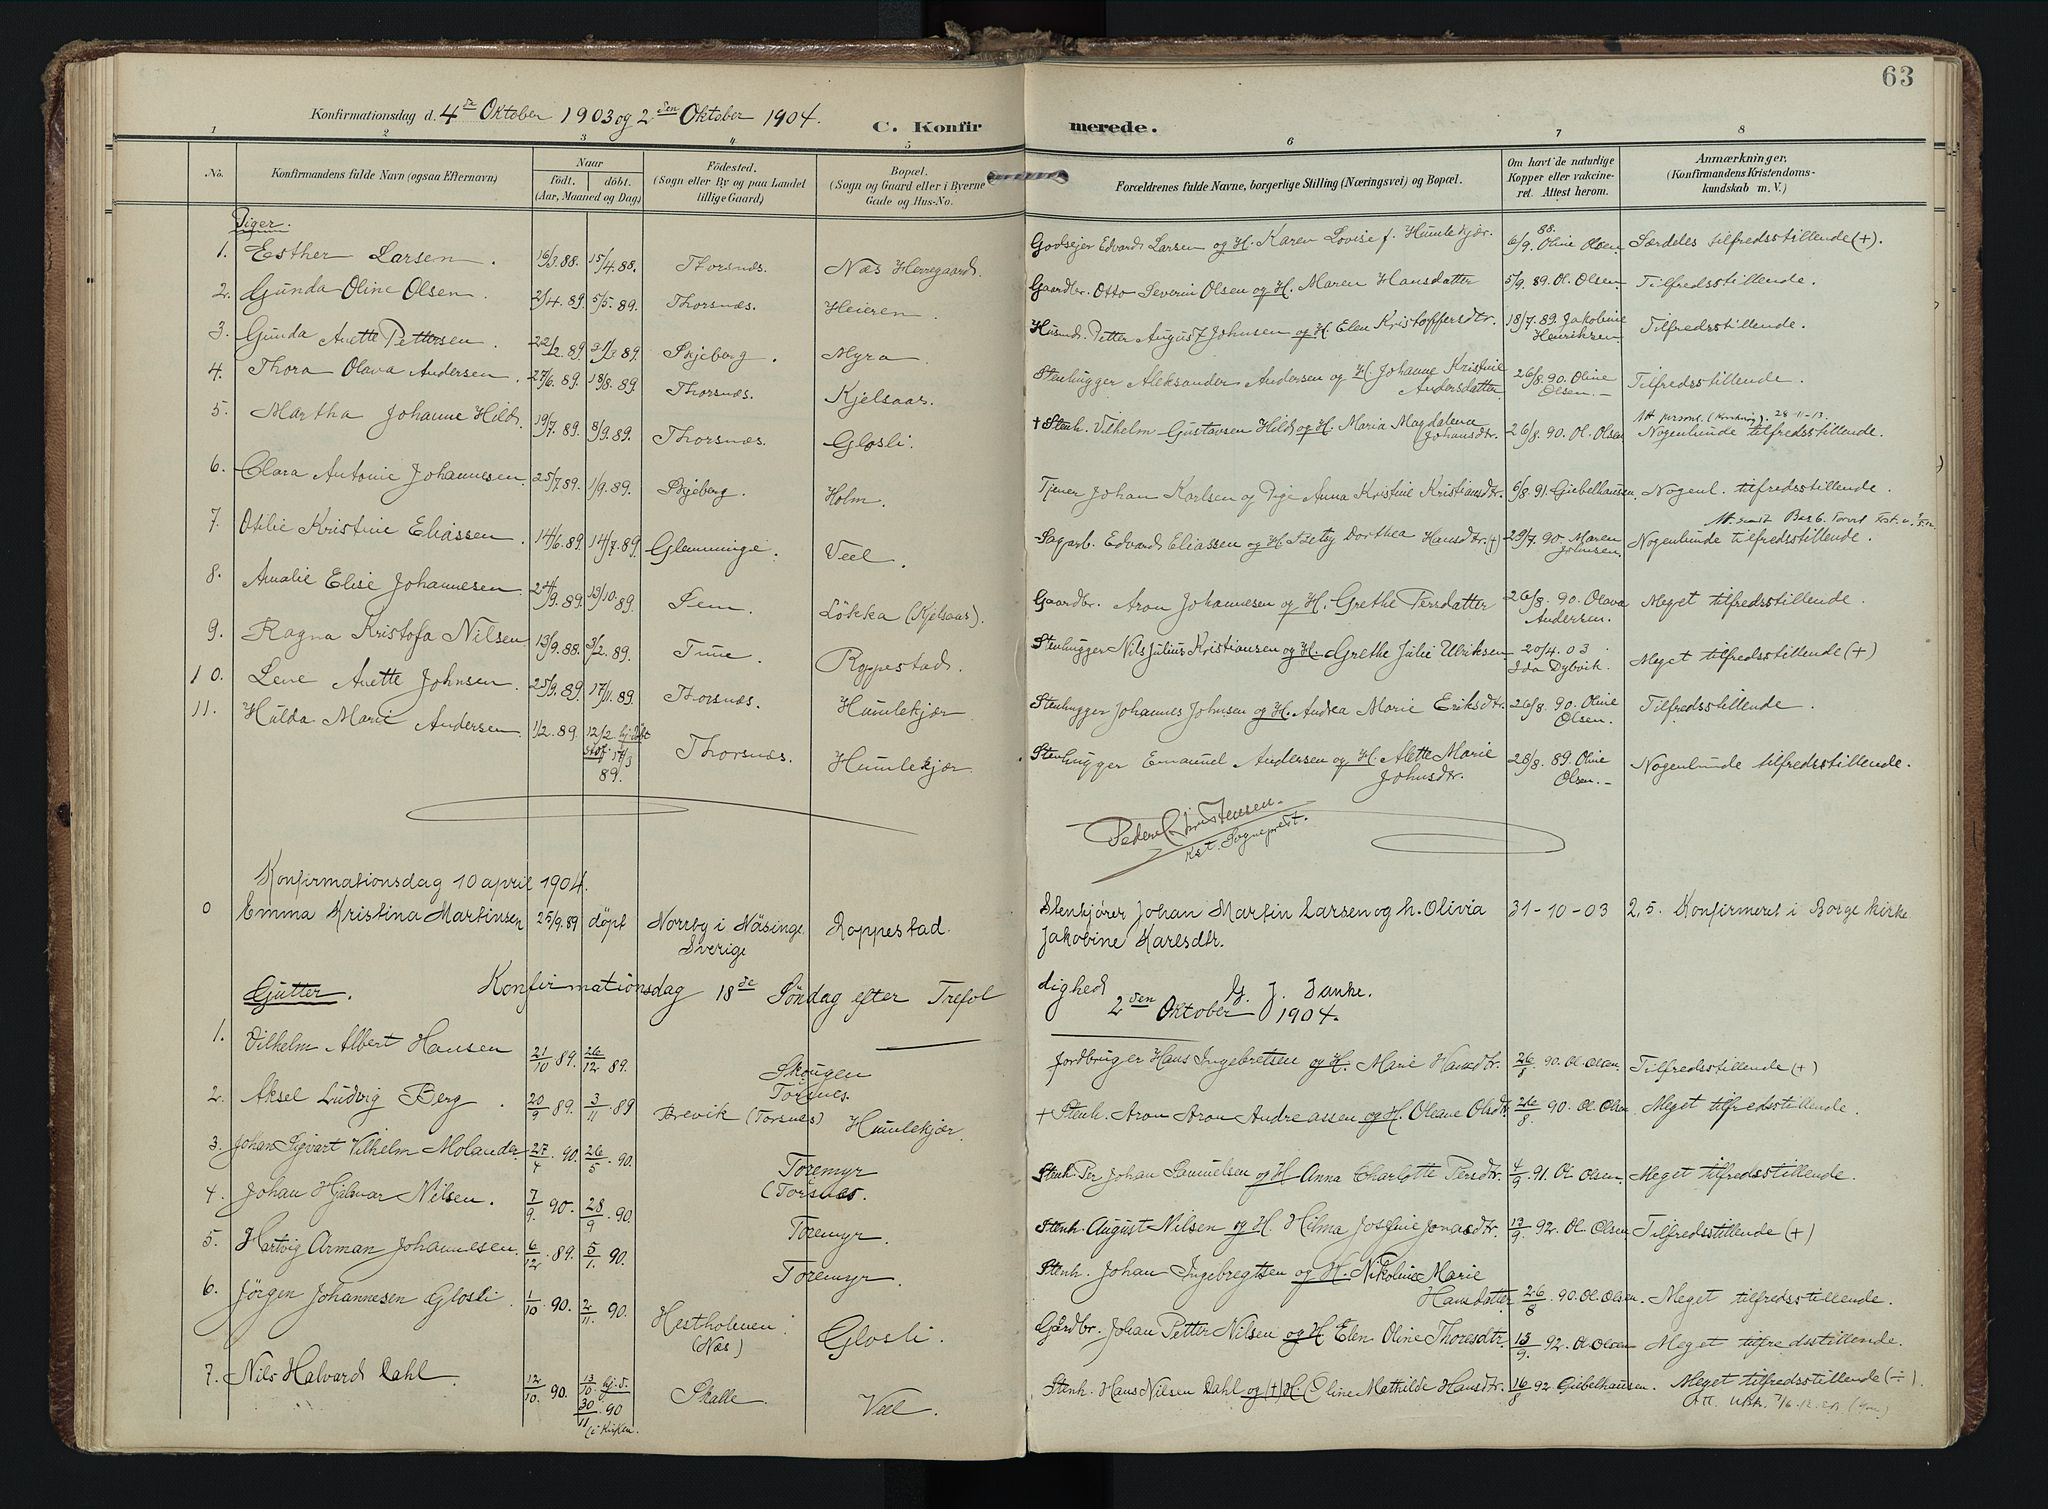 63
Konfirmationsdag d. 4de Oktober 1903 og 2den Oktober 1904.
C. Konfirmerede.
1 2 3 4 5 6 7 8
No. Konfirmandens fulde Navn (ogsaa Efternavn) Naar født. døbt. (Aar, Maaned og Dag) Fødested. (Sogn eller By og paa Landet tillige Gaard) Bopæl. (Sogn og Gaard eller i Byerne Gade og Hus-No. Forældrenes fulde Navne, borgerlige Stilling (Næringsvei) og Bopæl. Om havt de naturlige Kopper eller vaccineret. Attest herom. Anmærkninger. (Konfirmandens Kristendomskundskab m. V.)
Piger.
1. Esther Larsen. 16/3.88. 15/4.88. Thorsnæs. Næs Herregaard. Godsejer Edvard Larsen og H. Karen Lovise f. Humlekjær. 6/9. 88. Oline Olsen Særdeles tilfredsstillende (+).
2. Gunda Oline Olsen. 2/4.89 5/5.89. Thorsnæs. Heieren. Gaardbr. Otto Severin Olsen og H. Maren Hansdatter 5/9.89 Ol. Olsen Tilfredsstillende.
3. Gunda Anette Pettersen. 22/2.89. 31/3.89. Skjeberg. Myra. Husmd. Petter August Johnsen og H. Elen Kristoffersdtr. 18/7.89. Jakobine Henriksen Tilfredsstillende.
4. Thora Olava Andersen. 27/6.89. 18/8.89. Thorsnæs. Kjelsaas. Stenhugger Aleksander Andersen og H. Johanne Kristine Andersdatter. 26/8.90. Oline Olsen.- Tilfredsstillende.
5. Martha Johanne Hild. 19/7.89. 8/9.89. Thorsnæs. Glosli. + Stenh. Vilhelm Gustavsen Hild og H. Maria Magdalena Johansdtr. 26/8.90. Ol. Olsen 28-11-13. Nogenlunde tilfredsstillende.
6. Clara Antonie Johannesen. 25/7.89. 1/9.89. Skjeberg. Holm. Tjener Johan Karlsen og Pige Anna Kristine Kristiansdtr. 6/8.91. Giebelhausen. Nogenl. tilfredsstillende.
7. Otilie Kristine Eliassen. 14/6.89. 14/7.89. Glemminge. Veel. Sagarb. Edvard Eliassen og H. Betzy Dorthea Hansdtr. (+) 29/7.90. Maren Johnsen. Nogenlunde tilfredsstillende.
8. Amalie Elise Johannesen. 24/9.89. 13/10.89. Sem. Løkka (Kjelsaas). Gaardbr. Aron Johannesen og H. Grethe Persdatter 26/8.90. Olava Andersen. Meget tilfredsstillende.
9. Ragna Kristofa Nilsen. 13/9.88. 3/2.89. Tune. Roppestad. Stenhugger Nils Julius Kristiansen og H. Grethe Julie Ulriksen 20/4.03. Ida Dybvik. Meget tilfredsstillende (+)
10. Lene Anette Johnsen. 25/9.89. 17/11.89. Thorsnæs. Humlekjær. Stenhugger Johannes Johnsen og H. Andrea Marie Eriksdtr. 26/8.90. Oline Olsen. Tilfredsstillende.
11. Hilda Marie Andersen. 1/2.89. 12/2 hj.døbt Stad. 17/3 89. Thorsnæs. Humlekjær. Stenhugger Emanuel Andersen og H. Alette Marie Johnsdtr. 28/8.89. Oline Olsen.- Nogenlunde tilfredsstillende.
Peder Christensen.
Kst. Sogneprest.
Konfirmationsdag 10 april 1904.
0 Emma Kristina Martinsen 25/9.89 døpt Norrby i Näsinge Sverige Roppestad. Stenkjører Johan Martin Larsen og h. Olivia Jakobine Karlsdtr. 31-10-03 2,5. Konfirmeret i Borge kirke
Gutter. Konfirmationsdag 18de Søndag efter Trefoldighed 2den Oktober 1904.
G. J. Danke.
1. Vilhelm Albert Hansen 21/10 89. 26/12 89. Skougen Torsnes. Jordbruger Hans Ingebretsen og H. Marie Hansdtr. 26/8 90. Ol. Olsen. Tilfredsstillende (+)
2. Aksel Ludvig Berg. 20/9 89. 3/11 89 Brevik (Torsnes) Humlekjær. + Stenh. Aron Aron Andreassen og H. Oleane Olsdtr. 26/8. 90. Ol. Olsen Meget tilfredsstillende.
3. Johan Sigvart Vilhelm Molander. 27/4 90. 26/5. 90. Toremyr (Torsnæs. Stenh. Per Johan Samuelsen og H Anna Charlotte Persdtr. 4/9 91. Ol Olsen. Meget tilfredsstillende.
4. Johan Hjalmar Nilsen. 7/9. 90. 28/9. 90. Toremyr. Stenh. August Nilsen og H. Hilma Josefine Jonasdtr. 13/9 92. Ol. Olsen. Tilfredsstillende (+)
5. Hartvig Arman Johannesen. 6/12 89. 5/1. 90. Toremyr. Stenh. Johan Ingebregtsen og H. Nikoline Marie Hansdatter 26/8. 90. Ol. Olsen. Meget tilfredsstillende.
6. Jörgen Johannesen Glosli. 1/10. 90. 2/11. 90. Hestholmen (Næs) Glosli. Gårdbr. Johan Petter Nilsen og H Elen Oline Thoresdtr. 13/9. 92. Ol Olsen Meget tilfredsstillende.
7. Nils Halvard Dahl. 12/10. 90. 13/10. hj.d. 30/11 90 (i kirken. Skalle. Veel. Stenh. Hans Nilsen Dahl og (+) H. Oline Mathilde Hansdtr. 16/8 92. Giebelhausen. Meget tilfredsstillende (÷).